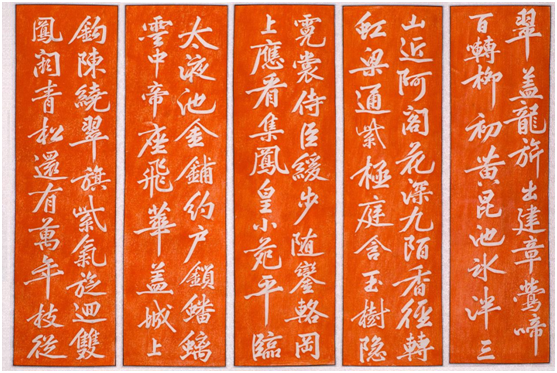 翠盖龍旂出建章鶯啼
百轉柳初黄昆池冰泮三
山近阿閣花深九陌香径轉
虹梁通紫極庭含玉樹隐
霓裳侍臣緩步随鑾輅岡
上應看集鳳皇小苑平臨
太液池金鋪約户鎖蟠螭
雲中帝座飛華盖城上
鈎陳繞翠旗紫氣旋迴雙
鳳闕青松還有萬年枝從